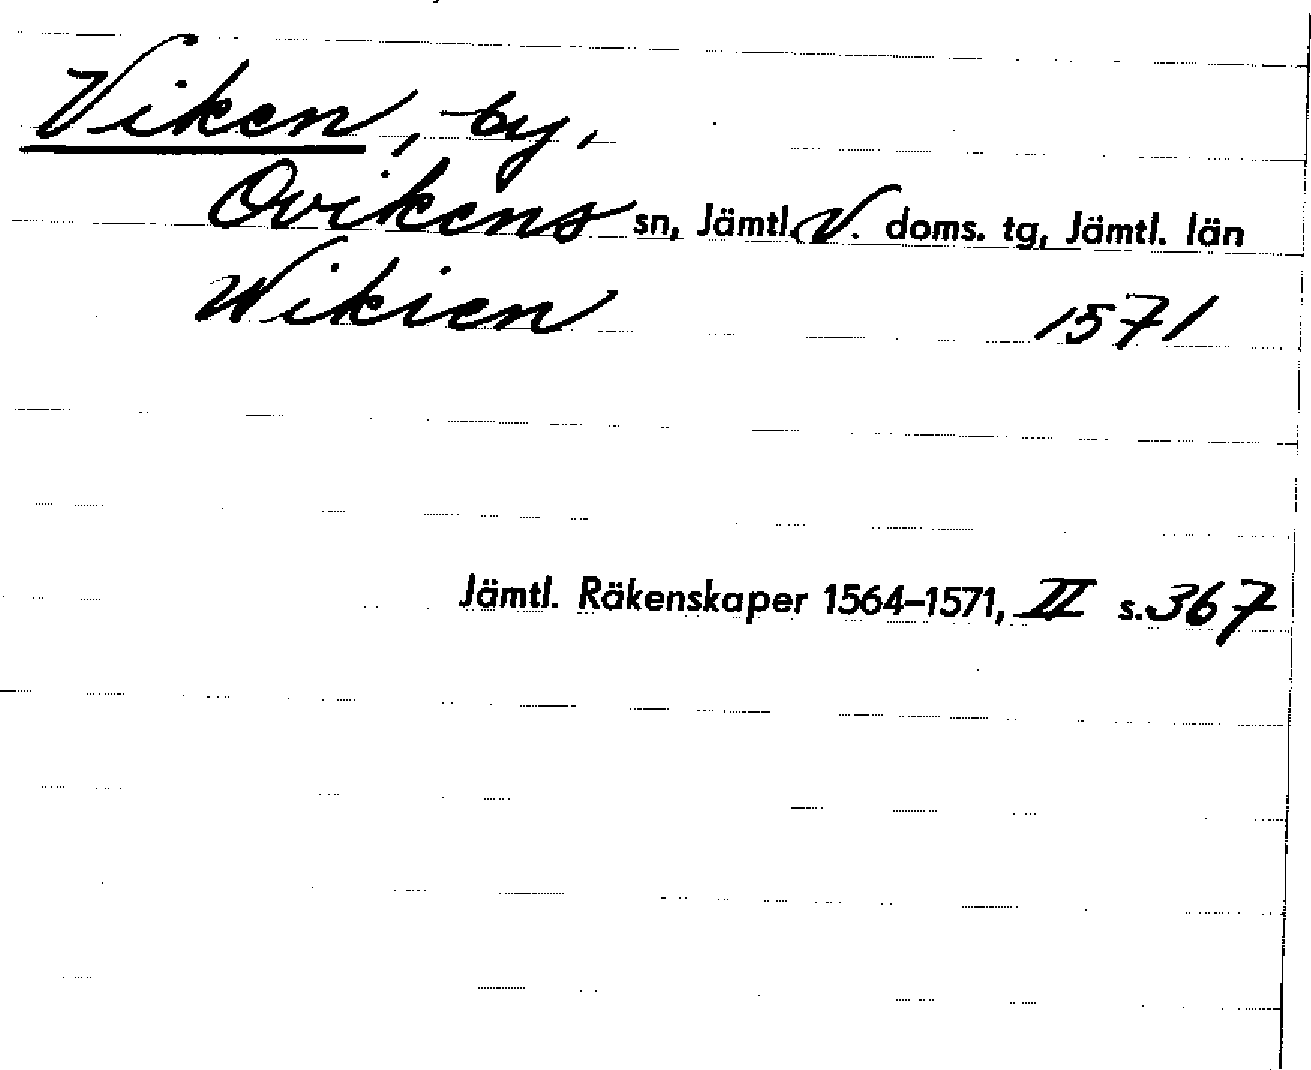 Viken, by,
Ovikens sn, Jämtl. V. doms. tg, Jämtl. län
Wikien 1571
Jämtl. Räkenskaper 1564–1571, II s. 367